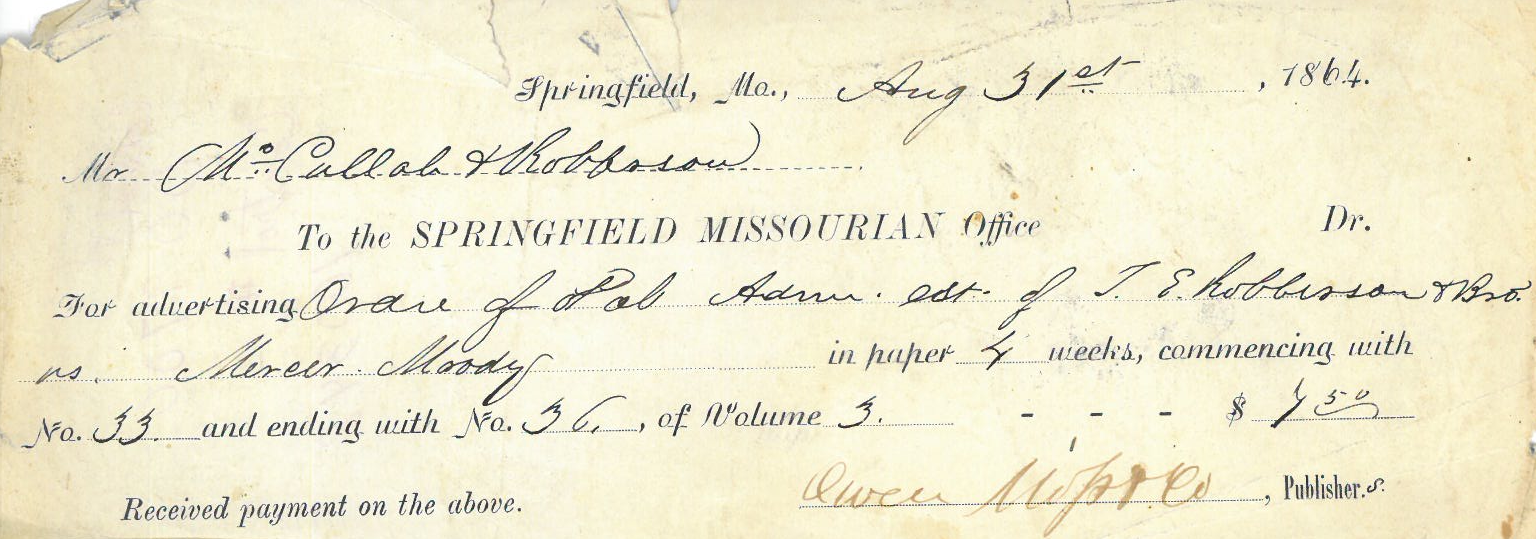 Springfield, Mo., Aug 31st, 1864.
Mr. McCullah & Robberson
To the SPRINGFIELD MISSOURIAN Office Dr.
For advertising Order of Pub Adm. est. of T. E. Robberson & Bro.
vs. Mercer Moody in paper 4 weeks, commencing with
No. 33 and ending with No. 36, of Volume 3. - - - $ 7 50
Owen &Co, Publishers.
Received payment on the above.